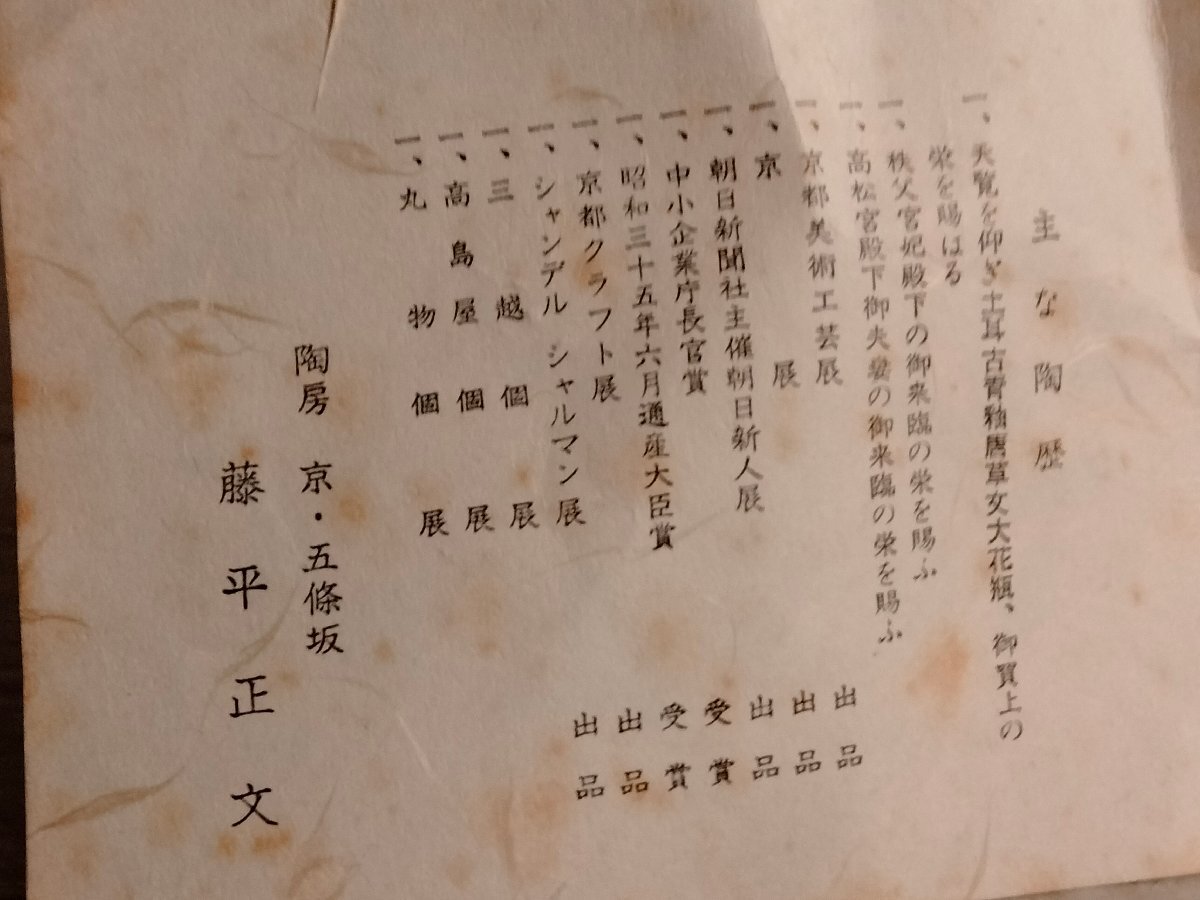 主な陶歴
一、天覧を仰ぎ土耳古青釉唐草文大花瓶、御買上の
栄を賜はる
一、秩父宮妃殿下の御来臨の栄を賜ふ
一、高松宮殿下御夫妻の御来臨の栄を賜ふ
一、京都美術工芸展 出品
一、京展 出品
一、朝日新聞社主催朝日新人展 出品
一、中小企業庁長官賞 受賞
一、昭和三十五年六月通産大臣賞 受賞
一、京都クラフト展 出品
一、シャンデル シャルマン展 出品
一、三越個展
一、高島屋個展
一、丸物個展
陶房 京・五條坂
藤平正文